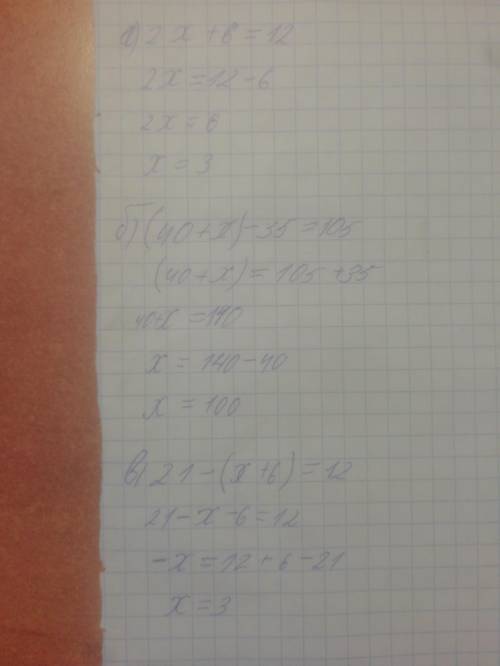 а) 2x+6=12
2x=12-6
2x=6
x=3
б) (40+x)-35=105
(40+x)=105+35
40+x=140
x=140-40
x=100
в) 21-(x+6)=12
21-x-6=12
-x=12+6-21
x=3